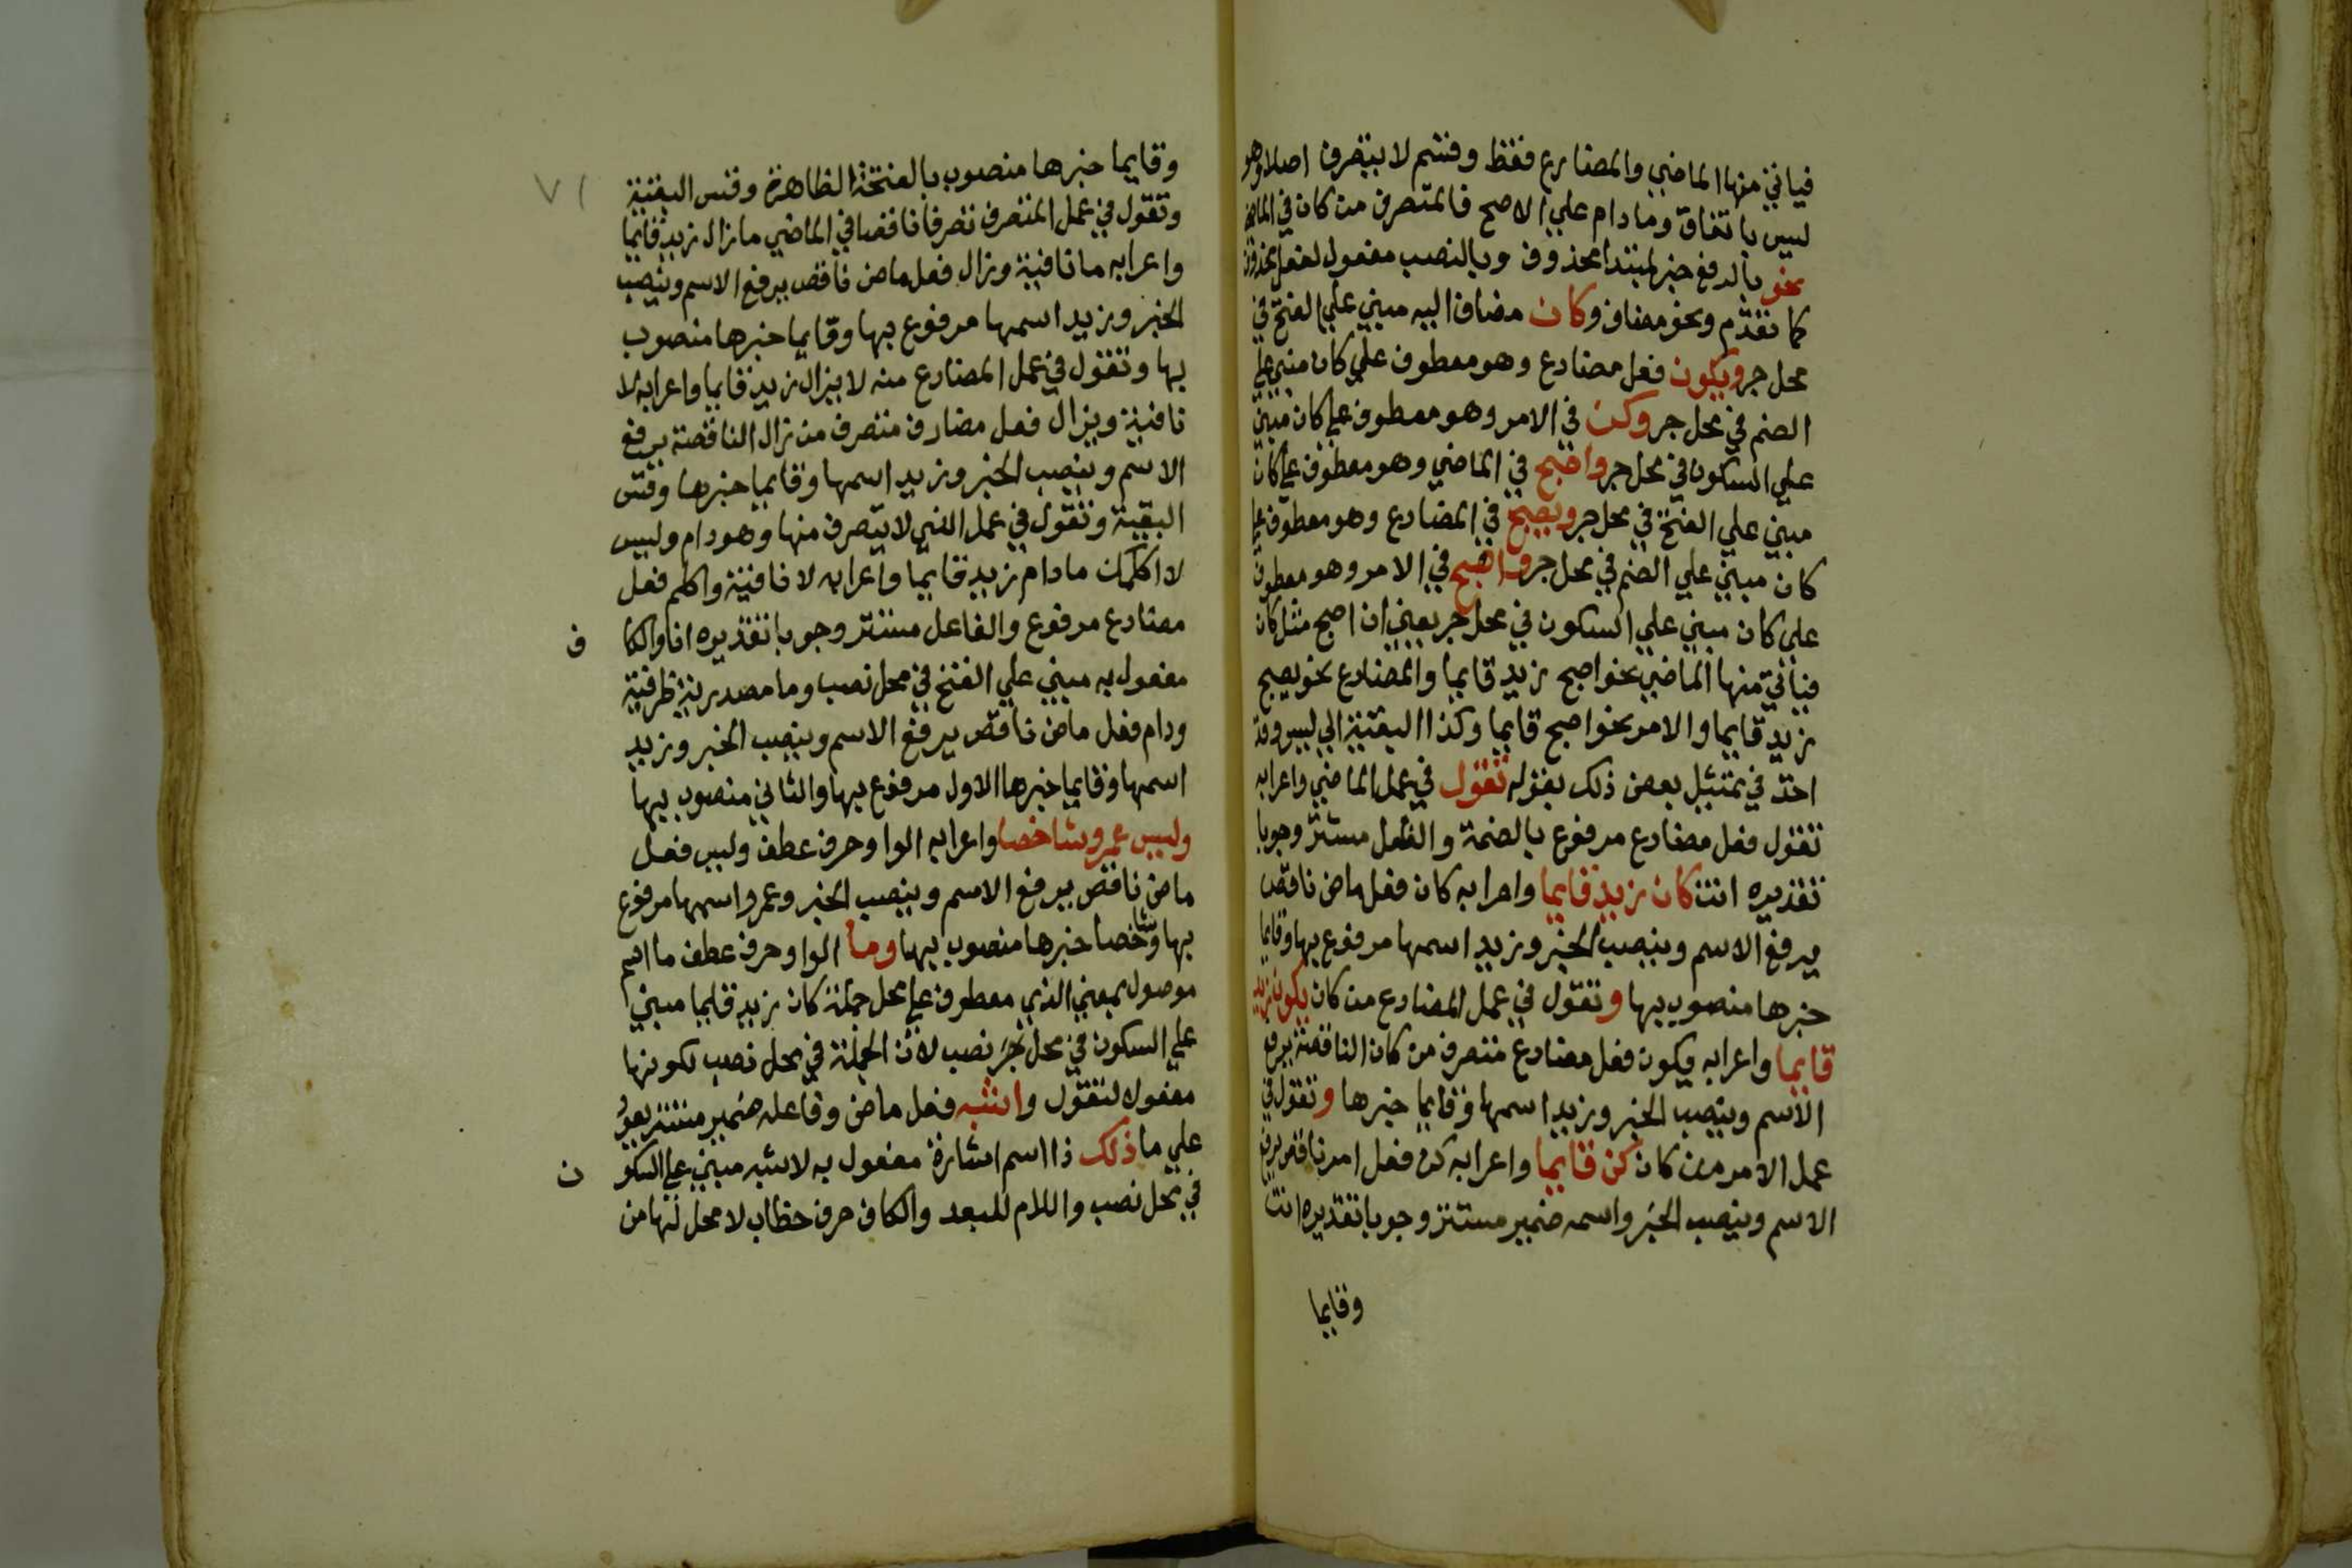 فياتي منها الماضي والمضارع فقط وقسم لا يتصرف اصلا وهو
ليس باتفاق وما دام علي الاصح فالمتصرف من كان في الماضي
نحو بالرفع خبر لمبتدا محذوف وبالنصب مفعول لفعل محذوف
كما تقدم ونحو مضاف وكان مضاف اليه مبني علي الفتح في
محل جر ويكون فعل مضارع وهو معطوف علي كان مبني علي
الضم في محل جر وكن في الامر وهو معطوف علي كان مبني
علي السكون في محل جر واصبح في الماضي وهو معطوف علي كان
مبني علي الفتح في محل جر ويصبح في المضارع وهو معطوف علي
كان مبني علي الضم في محل جر واصبح في الامر وهو معطوف
علي كان مبني علي السكون في محل جر يعني ان اصبح مثل كان
فياتي منها الماضي نحو اصبح زيد قايما والمضارع نحو يصبح
زيد قايما والامر نحو اصبح قايما وكذا البقية الي ليس وقد
اخذ في تمثيل بعض ذلك بقوله تقول في عمل الماضي واعرابه
تقول فعل مضارع مرفوع بالضمة والفاعل مستتر وجوبا
تقديره انت كان زيد قايما واعرابه كان فعل ماض ناقص
يرفع الاسم وينصب الخبر وزيد اسمها مرفوع بها وقايما
خبرها منصوب بها وتقول في عمل المضارع من كان يكون زيد
قايما واعرابه يكون فعل مضارع متصرف من كان الناقصة يرفع
الاسم وينصب الخبر وزيد اسمها وقايما خبرها وتقول في
عمل الامر من كان كن قايما واعرابه كن فعل امر ناقص يرفع
الاسم وينصب الخبر واسمه ضمير مستتر وجوبا تقديره انت
وقايما
٧١
وقايما خبرها منصوب بالفتحة الظاهرة وقس البقية
وتقول في عمل المتصرف تصرفا ناقصا في الماضي ما زال زيد قايما
واعرابه ما نافية وزال فعل ماض ناقص يرفع الاسم وينصب
الخبر وزيد اسمها مرفوع بها وقايما خبرها منصوب
بها وتقول في عمل المضارع منه لا يزال زيد قايما واعرابه لا
نافية ويزال فعل مضارع متصرف من زال الناقصة يرفع
الاسم وينصب الخبر وزيد اسمها وقايما خبرها وقس
البقية وتقول في عمل التي لا يتصرف منها وهو دام وليس
لا اكلمك ما دام زيد قايما واعرابه لا نافية واكلم فعل
مضارع مرفوع والفاعل مستتر وجوبا تقديره انا والكاف
مفعول به مبني علي الفتح في محل نصب وما مصدرية ظرفية
ودام فعل ماض ناقص يرفع الاسم وينصب الخبر وزيد
اسمها وقايما خبرها الاول مرفوع بها والثاني منصوب بها
وليس عمرو شاخصا واعرابه الواو حرف عطف وليس فعل
ماض ناقص يرفع الاسم وينصب الخبر وعمرو اسمها مرفوع
بها وشاخصا خبرها منصوب بها وما الواو حرف عطف ما اسم
موصول بمعني الذي معطوف علي محل جملة كان زيد قايما مبني
علي السكون في محل نصب لان الجملة في محل نصب لكونها
مفعول لتقول واشبه فعل ماض وفاعله ضمير مستتر يعود
علي ما ذلك ذا اسم اشارة مفعول به لاشبه مبني علي السكون
في محل نصب واللام للبعد والكاف حرف خطاب لا محل لها من